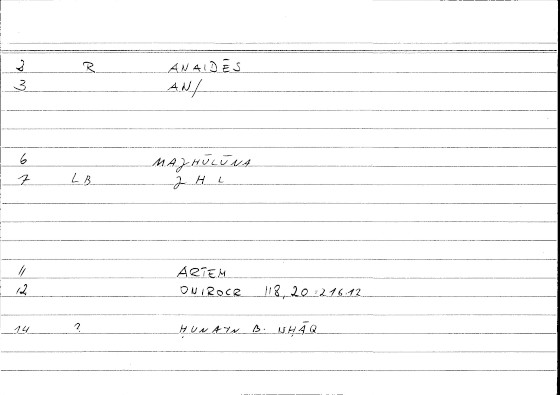 2 R ANAIDĒS
3 AN/
6 MAJHŪLŪNA
7 LB J H L
11 ARTEM
12 ONIROCR 118,20 : 216 12
14 ? ḤUNAYN B. ISḤĀQ